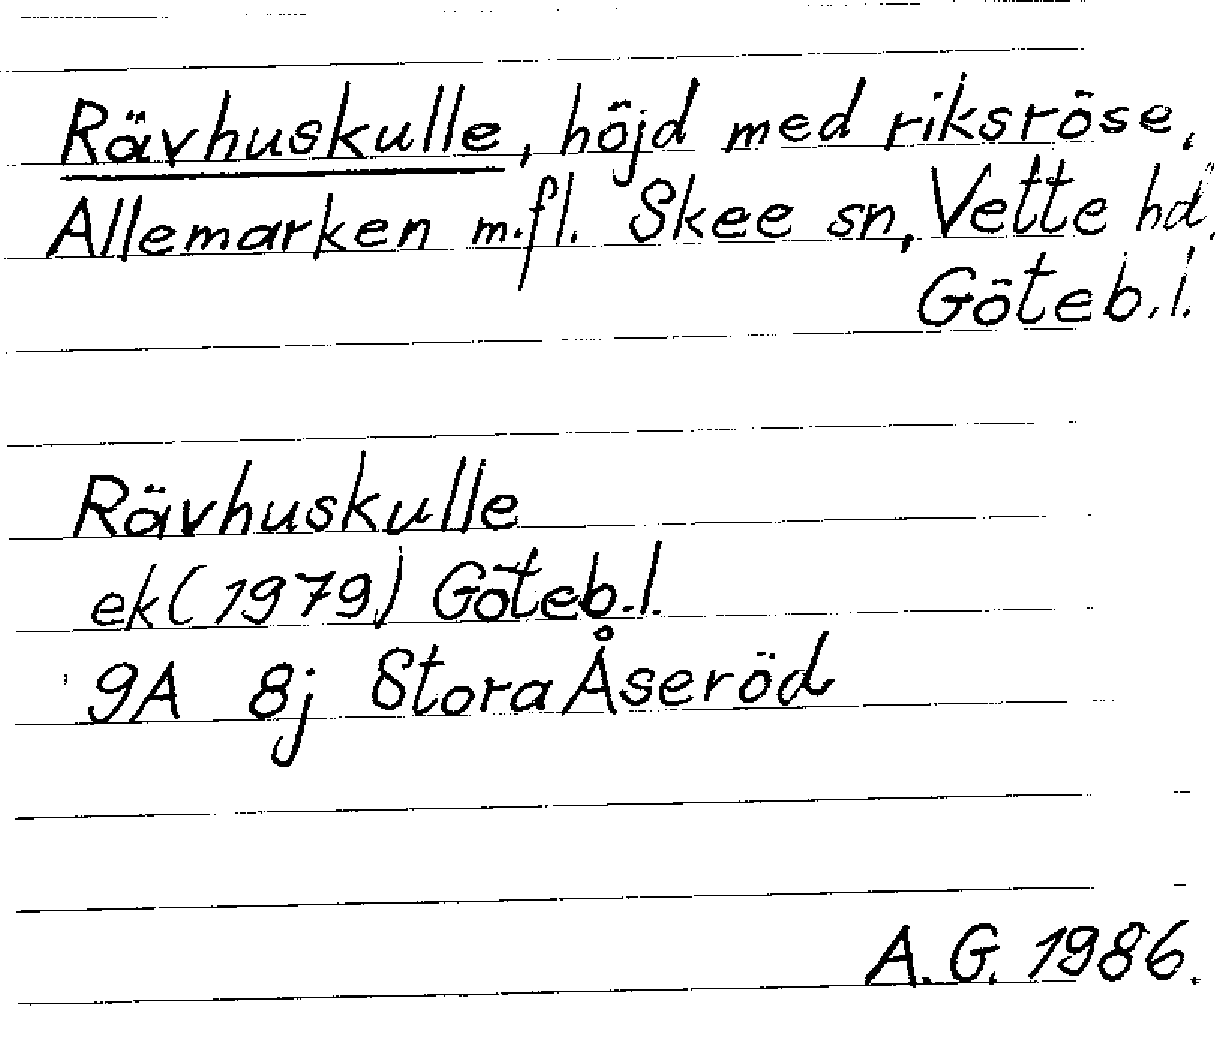 Rävhuskulle, höjd med riksröse,
Allemarken m.fl. Skee sn, Vette hd,
Göteb.l.
Rävhuskulle
ek (1979) Göteb.l.
9A 8j Stora Åseröd
A.G. 1986.